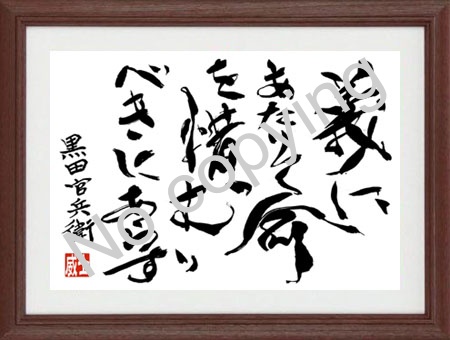 義に
あたりて命
を惜む
べきに
黒田官兵衛
No copying